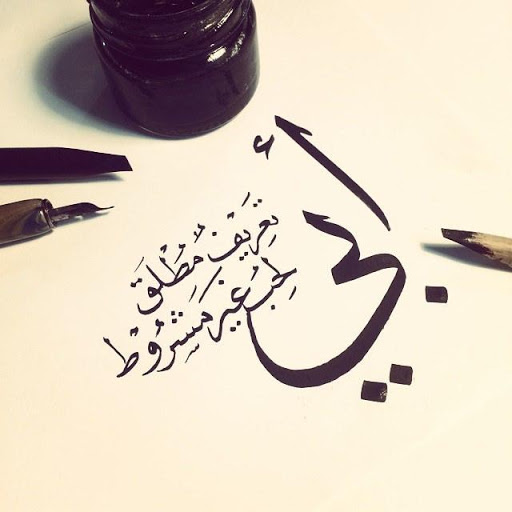 أبي
تعريف مُطْلَق
لحُب غير مَشرُوط